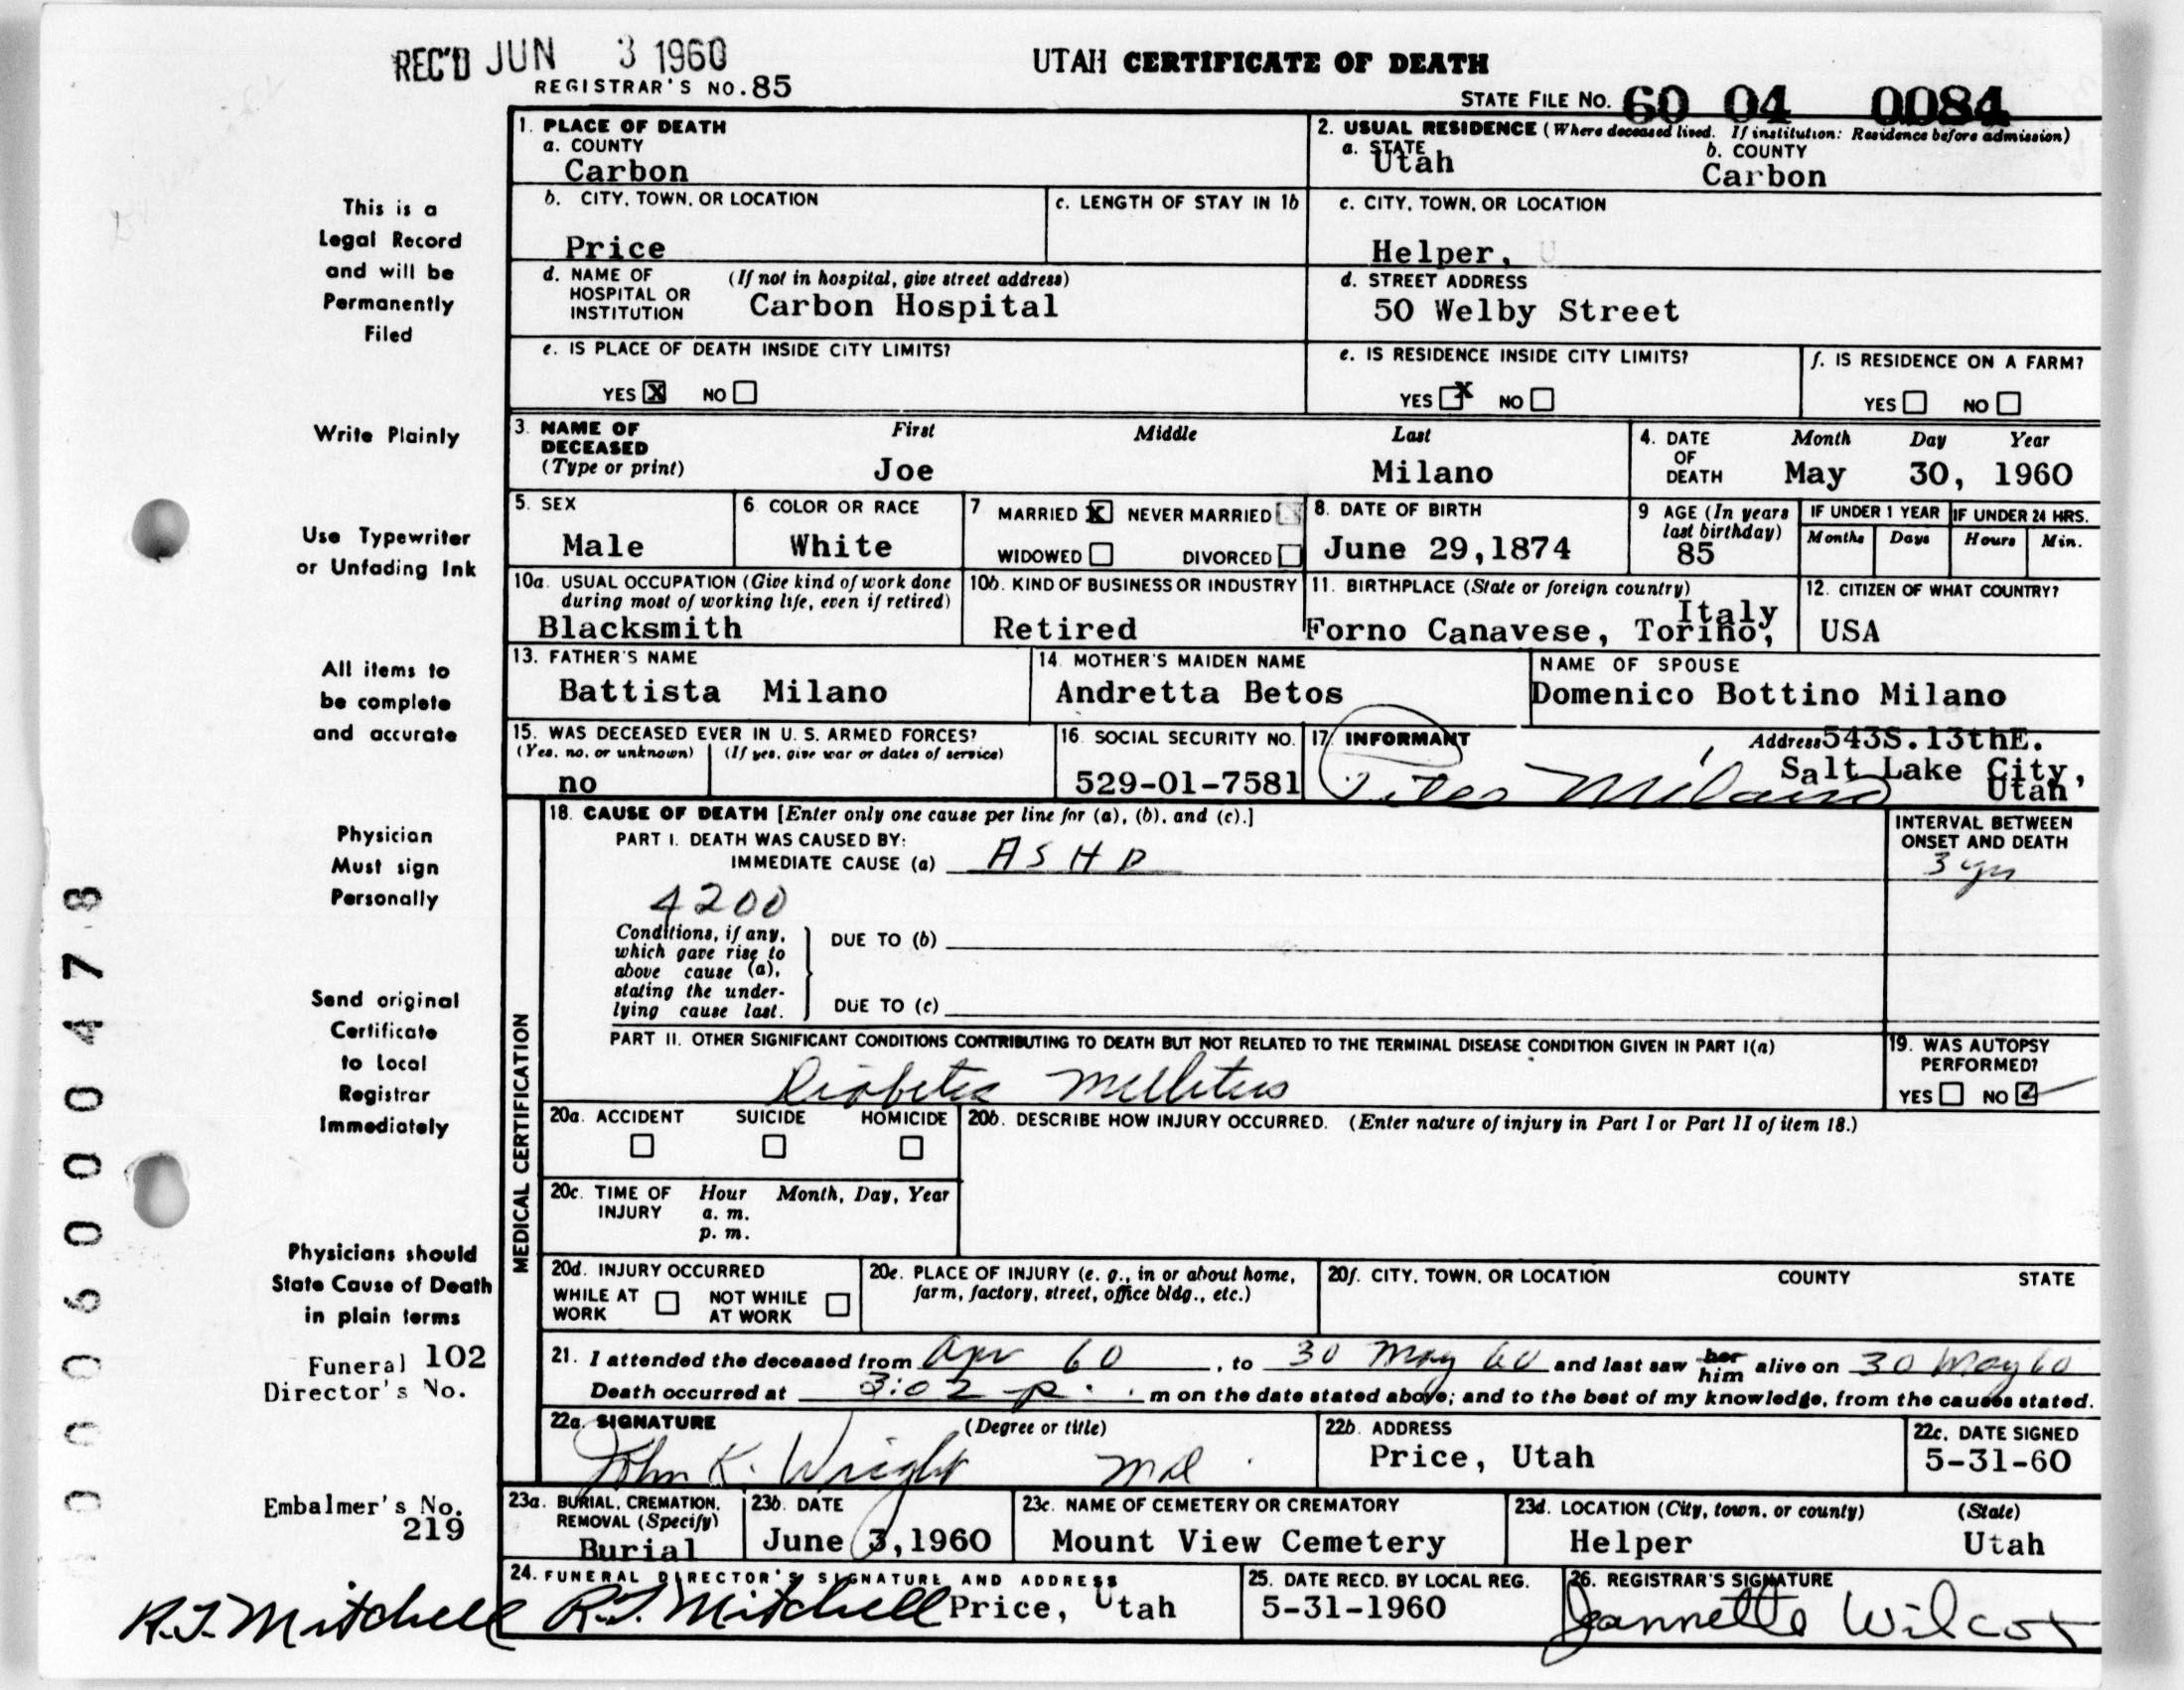 REC'D JUN 3 1960
REGISTRAR'S NO. 85
UTAH CERTIFICATE OF DEATH
STATE FILE NO. 60 04 0084
1. PLACE OF DEATH
a. COUNTY
Carbon
2. USUAL RESIDENCE (Where deceased lived. If institution: Residence before admission)
a. STATE b. COUNTY
Utah Carbon
b. CITY, TOWN, OR LOCATION c. LENGTH OF STAY IN 1b
Price
c. CITY, TOWN, OR LOCATION
Helper,
d. NAME OF HOSPITAL OR INSTITUTION (If not in hospital, give street address)
Carbon Hospital
d. STREET ADDRESS
50 Welby Street
e. IS PLACE OF DEATH INSIDE CITY LIMITS?
YES X NO
e. IS RESIDENCE INSIDE CITY LIMITS?
YES X NO
f. IS RESIDENCE ON A FARM?
YES NO
3. NAME OF DECEASED (Type or print) First Middle Last
Joe Milano
4. DATE OF DEATH Month Day Year
May 30, 1960
5. SEX
Male
6. COLOR OR RACE
White
7 MARRIED X NEVER MARRIED
WIDOWED DIVORCED
8. DATE OF BIRTH
June 29,1874
9 AGE (In years last birthday)
85
IF UNDER 1 YEAR IF UNDER 24 HRS.
Months Days Hours Min.
10a. USUAL OCCUPATION (Give kind of work done during most of working life, even if retired)
Blacksmith
10b. KIND OF BUSINESS OR INDUSTRY
Retired
11. BIRTHPLACE (State or foreign country)
Forno Canavese, Torino, Italy
12. CITIZEN OF WHAT COUNTRY?
USA
13. FATHER'S NAME
Battista Milano
14. MOTHER'S MAIDEN NAME
Andretta Betos
NAME OF SPOUSE
Domenico Bottino Milano
15. WAS DECEASED EVER IN U. S. ARMED FORCES?
(Yes, no. or unknown) (If yes, give war or dates of service)
no
16. SOCIAL SECURITY NO.
529-01-7581
17. INFORMANT Address
Milano
543S.13thE.
Salt Lake City,
Utah
MEDICAL CERTIFICATION
18. CAUSE OF DEATH [Enter only one cause per line for (a), (b), and (c).]
PART I. DEATH WAS CAUSED BY:
IMMEDIATE CAUSE (a) ASHD
INTERVAL BETWEEN ONSET AND DEATH
3 yrs
4200
Conditions, if any, which gave rise to above cause (a), stating the underlying cause last.
DUE TO (b)
DUE TO (c)
PART II. OTHER SIGNIFICANT CONDITIONS CONTRIBUTING TO DEATH BUT NOT RELATED TO THE TERMINAL DISEASE CONDITION GIVEN IN PART I(a)
Diabetes Mellitus
19. WAS AUTOPSY PERFORMED?
YES NO ✓
20a. ACCIDENT SUICIDE HOMICIDE
20b. DESCRIBE HOW INJURY OCCURRED. (Enter nature of injury in Part I or Part II of item 18.)
20c. TIME OF INJURY Hour Month, Day, Year
a. m.
p. m.
20d. INJURY OCCURRED
WHILE AT WORK NOT WHILE AT WORK
20e. PLACE OF INJURY (e. g., in or about home, farm, factory, street, office bldg., etc.)
20f. CITY, TOWN, OR LOCATION COUNTY STATE
21. I attended the deceased from Apr 60, to 30 May 60 and last saw her him alive on 30 May 60
Death occurred at 3:02 p. m on the date stated above; and to the best of my knowledge, from the causes stated.
22a. SIGNATURE (Degree or title)
John K. Wright Md
22b. ADDRESS
Price, Utah
22c. DATE SIGNED
5-31-60
23a. BURIAL, CREMATION, REMOVAL (Specify)
Burial
23b. DATE
June 3,1960
23c. NAME OF CEMETERY OR CREMATORY
Mount View Cemetery
23d. LOCATION (City, town, or county) (State)
Helper Utah
24. FUNERAL DIRECTOR'S SIGNATURE AND ADDRESS
R.J. Mitchell R.J. Mitchell Price, Utah
25. DATE RECD. BY LOCAL REG.
5-31-1960
26. REGISTRAR'S SIGNATURE
Jeannette Wilcox
This is a
Legal Record
and will be
Permanently
Filed
Write Plainly
Use Typewriter
or Unfading Ink
All items to
be complete
and accurate
Physician
Must sign
Personally
Send original
Certificate
to Local
Registrar
Immediately
Physicians should
State Cause of Death
in plain terms
Funeral 102
Director's No.
Embalmer's No.
219
000600478